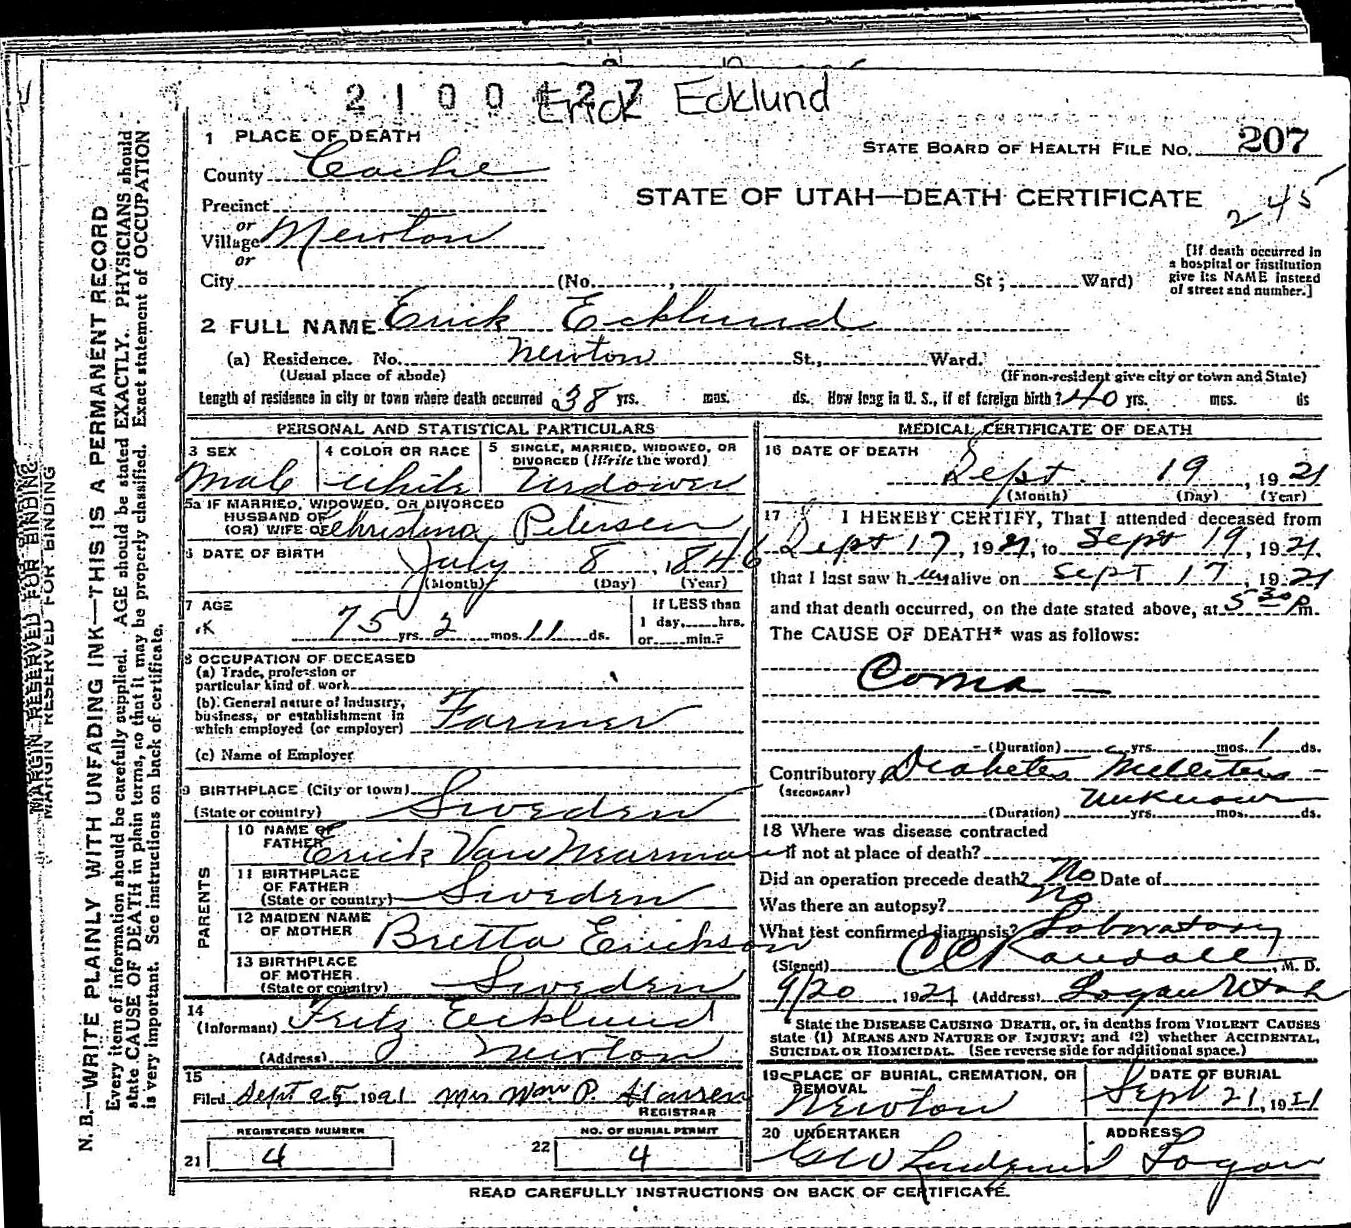 2100427
Erick Ecklund
1 PLACE OF DEATH
County Cache
STATE BOARD OF HEALTH FILE NO. 207
Precinct
or
STATE OF UTAH—DEATH CERTIFICATE
245
Village Newton
or
City (No. , St; Ward)
[If death occurred in
a hospital or institution
give its NAME instead
of street and number.]
2 FULL NAME Erick Ecklund
(a) Residence. No. Newton St., Ward.
(Usual place of abode) (If non-resident give city or town and State)
Length of residence in city or town where death occurred 38 yrs. mos. ds. How long in U. S., if of foreign birth? 40 yrs. mos. ds
PERSONAL AND STATISTICAL PARTICULARS
3 SEX Male
4 COLOR OR RACE White
5 SINGLE, MARRIED, WIDOWED, OR
DIVORCED (Write the word)
Widower
5a IF MARRIED, WIDOWED, OR DIVORCED
HUSBAND OF
(OR) WIFE OF Christina Petersen
6 DATE OF BIRTH July 8, 1846
(Month) (Day) (Year)
7 AGE
75 yrs. 2 mos. 11 ds.
If LESS than
1 day, hrs.
or min.?
8 OCCUPATION OF DECEASED
(a) Trade, profession or
particular kind of work
(b) General nature of Industry,
business, or establishment in
which employed (or employer) Farmer
(c) Name of Employer
9 BIRTHPLACE (City or town)
(State or country) Sweden
PARENTS
10 NAME OF
FATHER Erick Van
11 BIRTHPLACE
OF FATHER
(State or country) Sweden
12 MAIDEN NAME
OF MOTHER Bretta Erickson
13 BIRTHPLACE
OF MOTHER
(State or country) Sweden
14
(Informant) Fritz Ecklund
(Address) Newton
15
Filed Sept 25 1921 Mrs Wm P. Hansen
REGISTRAR
REGISTERED NUMBER
21 4
NO. OF BURIAL PERMIT
22 4
MEDICAL CERTIFICATE OF DEATH
16 DATE OF DEATH
Sept. 19, 1921
(Month) (Day) (Year)
17 I HEREBY CERTIFY, That I attended deceased from
Sept 17, 1921, to Sept 19, 1921,
that I last saw him alive on Sept 17, 1921
and that death occurred, on the date stated above, at 5 30 P.m.
The CAUSE OF DEATH* was as follows:
Coma —
(Duration) yrs. mos. 1 ds.
Contributory Diabetes Mellitus —
(SECONDARY) Unknown
(Duration) yrs. mos. ds.
18 Where was disease contracted
if not at place of death?
Did an operation precede death? No Date of
Was there an autopsy? No
What test confirmed diagnosis? Laboratory
(Signed) CC Randall, M. D.
9/20, 1921 (Address) Logan Utah
*State the DISEASE CAUSING DEATH, or, in deaths from VIOLENT CAUSES
state (1) MEANS AND NATURE OF INJURY; and (2) whether ACCIDENTAL,
SUICIDAL OR HOMICIDAL. (See reverse side for additional space.)
19 PLACE OF BURIAL, CREMATION, OR
REMOVAL
Newton
DATE OF BURIAL
Sept 21, 1921
20 UNDERTAKER
ADDRESS
Logan
READ CAREFULLY INSTRUCTIONS ON BACK OF CERTIFICATE.
MARGIN RESERVED FOR BINDING
MARGIN RESERVED FOR BINDING
N. B.—WRITE PLAINLY WITH UNFADING INK—THIS IS A PERMANENT RECORD
Every item of information should be carefully supplied. AGE should be stated EXACTLY. PHYSICIANS should
state CAUSE OF DEATH in plain terms, so that it may be properly classified. Exact statement of OCCUPATION
is very important. See instructions on back of certificate.